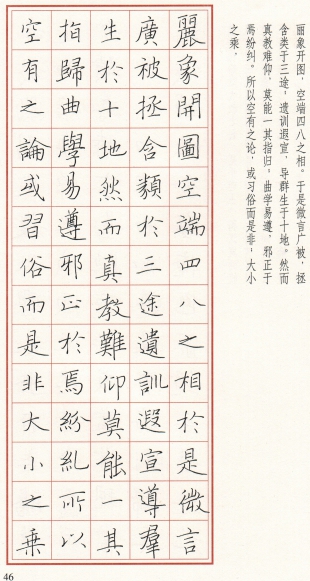 丽象开图，空端四八之相。于是微言广被，拯
含类于三途；遗训遐宣，导群生于十地。然而
真教难仰，莫能一其指归，曲学易遵，邪正于
焉纷纠。所以空有之论，或习俗而是非；大小
之乘，
麗象開圖空端四八之相於是微言
廣被拯含類於三途遺訓遐宣導羣
生於十地然而真教難仰莫能一其
指歸曲學易遵邪正於焉紛糺所以
空有之論或習俗而是非大小之乗
46